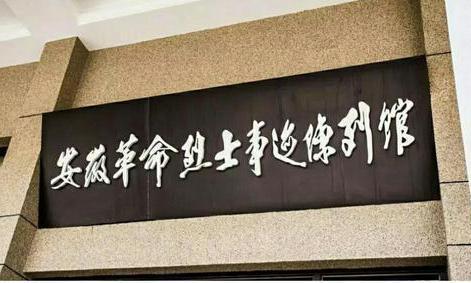 安徽革命烈士事迹陈列馆